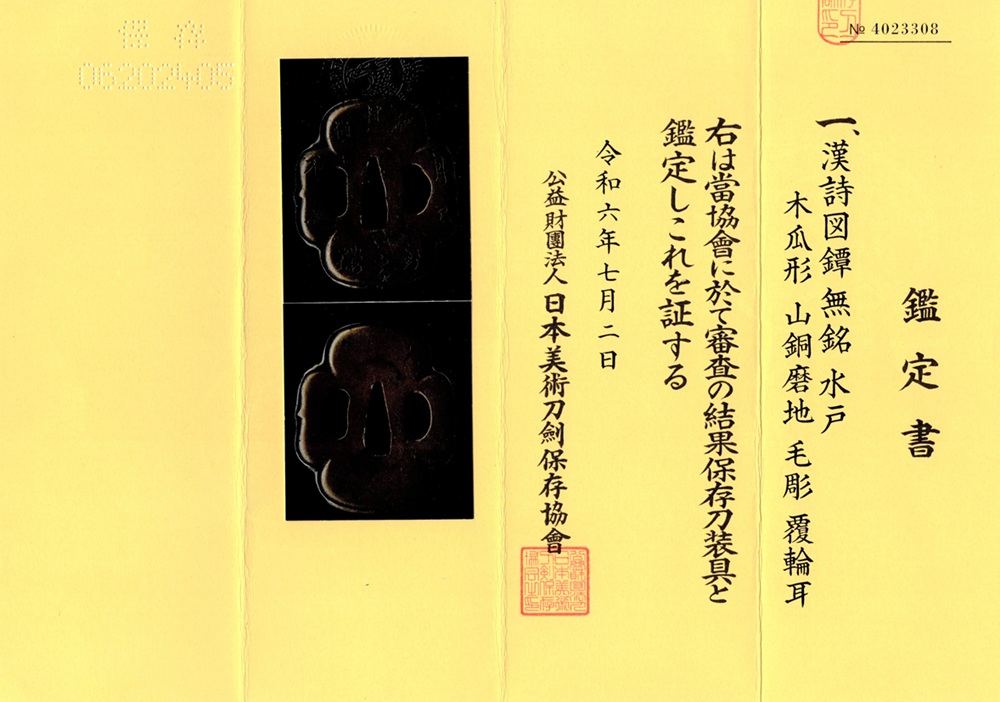 № 4023308
鑑定書
一、漢詩図鐔 無銘 水戸
木瓜形 山銅磨地 毛彫 覆輪耳
右は當協會に於て審査の結果保存刀装具と
鑑定しこれを証する
令和六年七月二日
公益財團法人 日本美術刀劍保存協會
保存
06202405